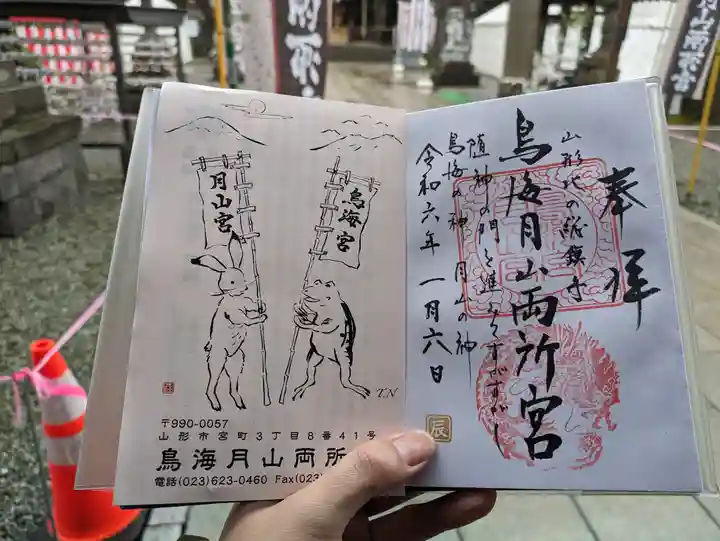 月山宮
鳥海宮
T.N
〒990-0057
山形市宮町3丁目8番41号
鳥海月山両所
電話(023)623-0460 Fax(023)
奉拝
山形北の総鎮守
鳥海月山両所宮
随神の門を進
すがすがし
鳥海の神 月山の神
令和六年 一月六日
辰